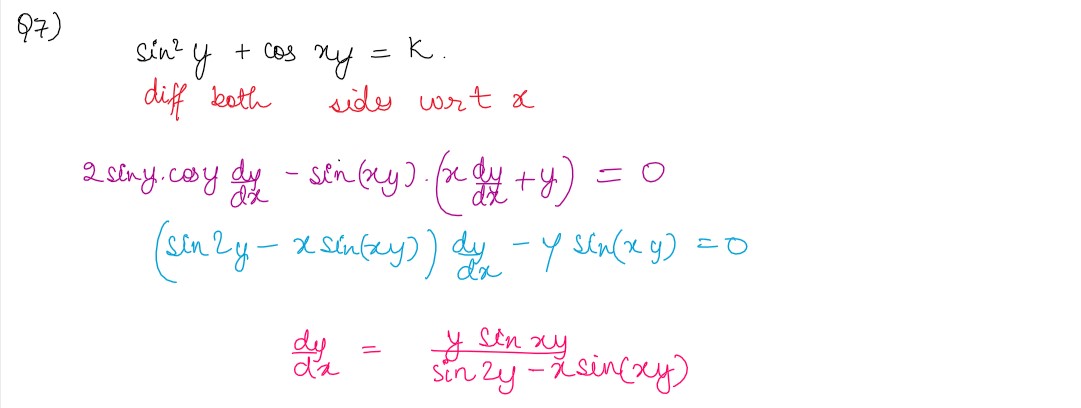 Q7)
sin² y + cos xy = K.
diff both sides wrt x
2 siny. cosy dy/dx - sin(xy) . (x dy/dx + y) = 0
(sin 2y - x sin(xy)) dy/dx - y sin(xy) = 0
dy/dx = y sin xy / sin 2y - x sin(xy)